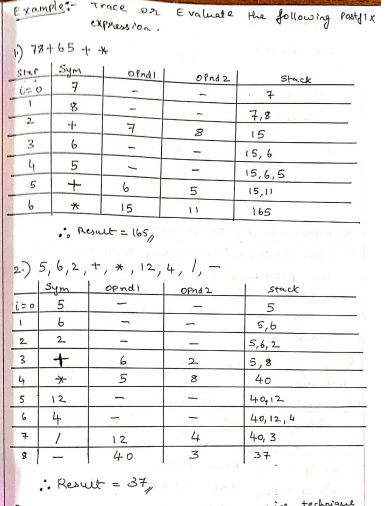 Example:- Trace or Evaluate the following Postfix
expression.
1.) 78+65+*
Step Sym OPnd1 OPnd2 Stack
i=0 7 - - 7
1 8 - - 7,8
2 + 7 8 15
3 6 - - 15,6
4 5 - - 15,6,5
5 + 6 5 15,11
6 * 15 11 165
∴ Result = 165//
2.) 5,6,2,+,*,12,4,/,-
Sym OPnd1 OPnd2 Stack
i=0 5 - - 5
1 6 - - 5,6
2 2 - - 5,6,2
3 + 6 2 5,8
4 * 5 8 40
5 12 - - 40,12
6 4 - - 40,12,4
7 / 12 4 40,3
8 - 40 3 37
∴ Result = 37//
technique